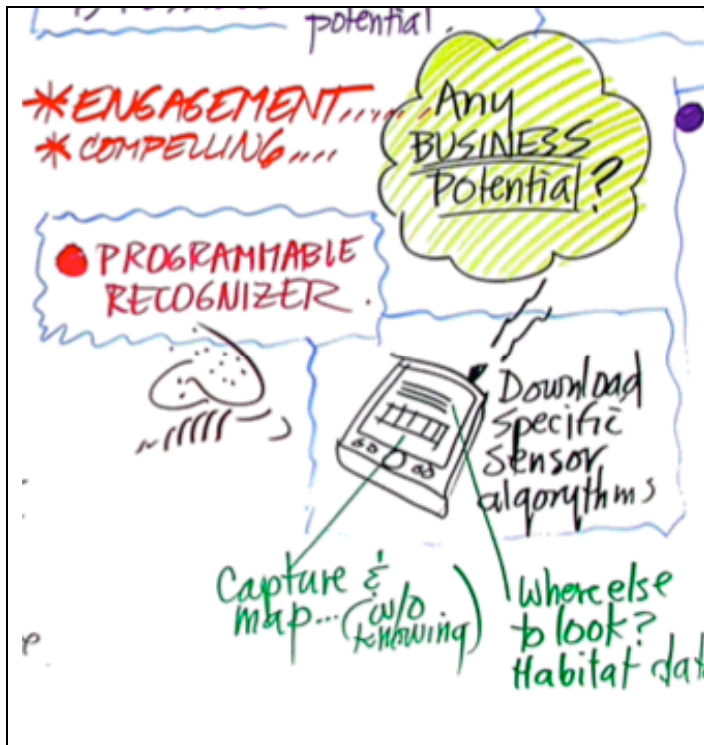 potential.
*ENGAGEMENT.......
*COMPELLING....
Any
BUSINESS
Potential?
PROGRAMMABLE
RECOGNIZER.
Download
specific
sensor
algorythms
Capture &
map...(w/o
knowing)
Where else
to look?
Habitat dat